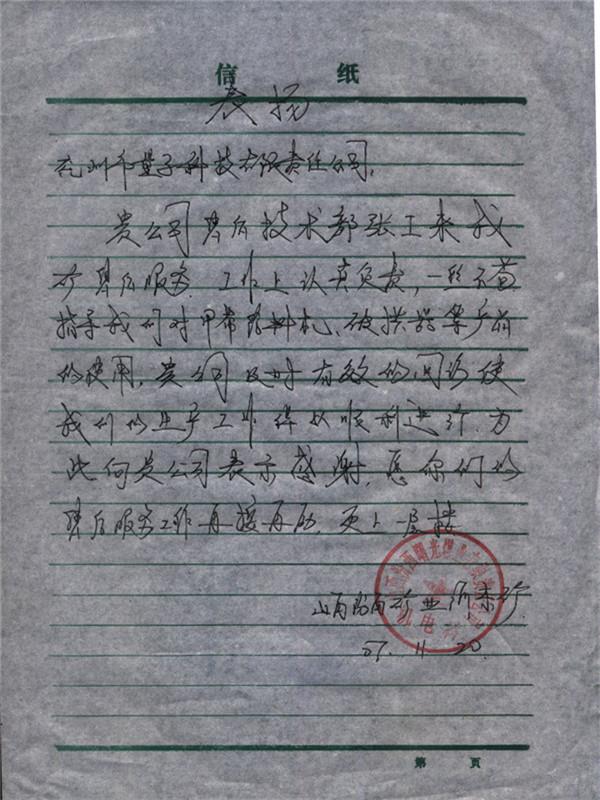 信 纸
表扬
兖州市量子科技有限责任公司:
贵公司售后技术部张工来我
矿售后服务,工作上认真负责,一丝不苟
指导我们对甲带给料机、破拱器等产品
的使用,贵公司及时有效的回访使
我们的生产工作得以顺利进行,为
此向贵公司表示感谢,愿你们的
售后服务工作再接再励,更上一层楼
山西汾西矿业
07. 11. 20.
机电科
第 页